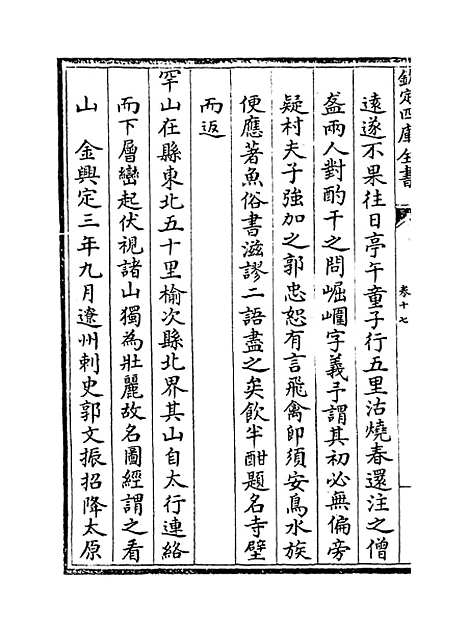 欽定四庫全書
卷十七
遠遂不果往日亭午童子行五里沽燒春還注之僧
盋兩人對酌干之問崛𡾋字義予謂其初必無偏旁
疑村夫子強加之郭忠恕有言飛禽卽須安鳥水族
便應著魚俗書滋謬二語盡之矣飲半酣題名寺壁
而返
罕山在縣東北五十里榆次縣北界其山自太行連絡
而下層巒起伏視諸山獨為壯麗故名圖經謂之看
山　金興定三年九月遼州刺史郭文振招降太原